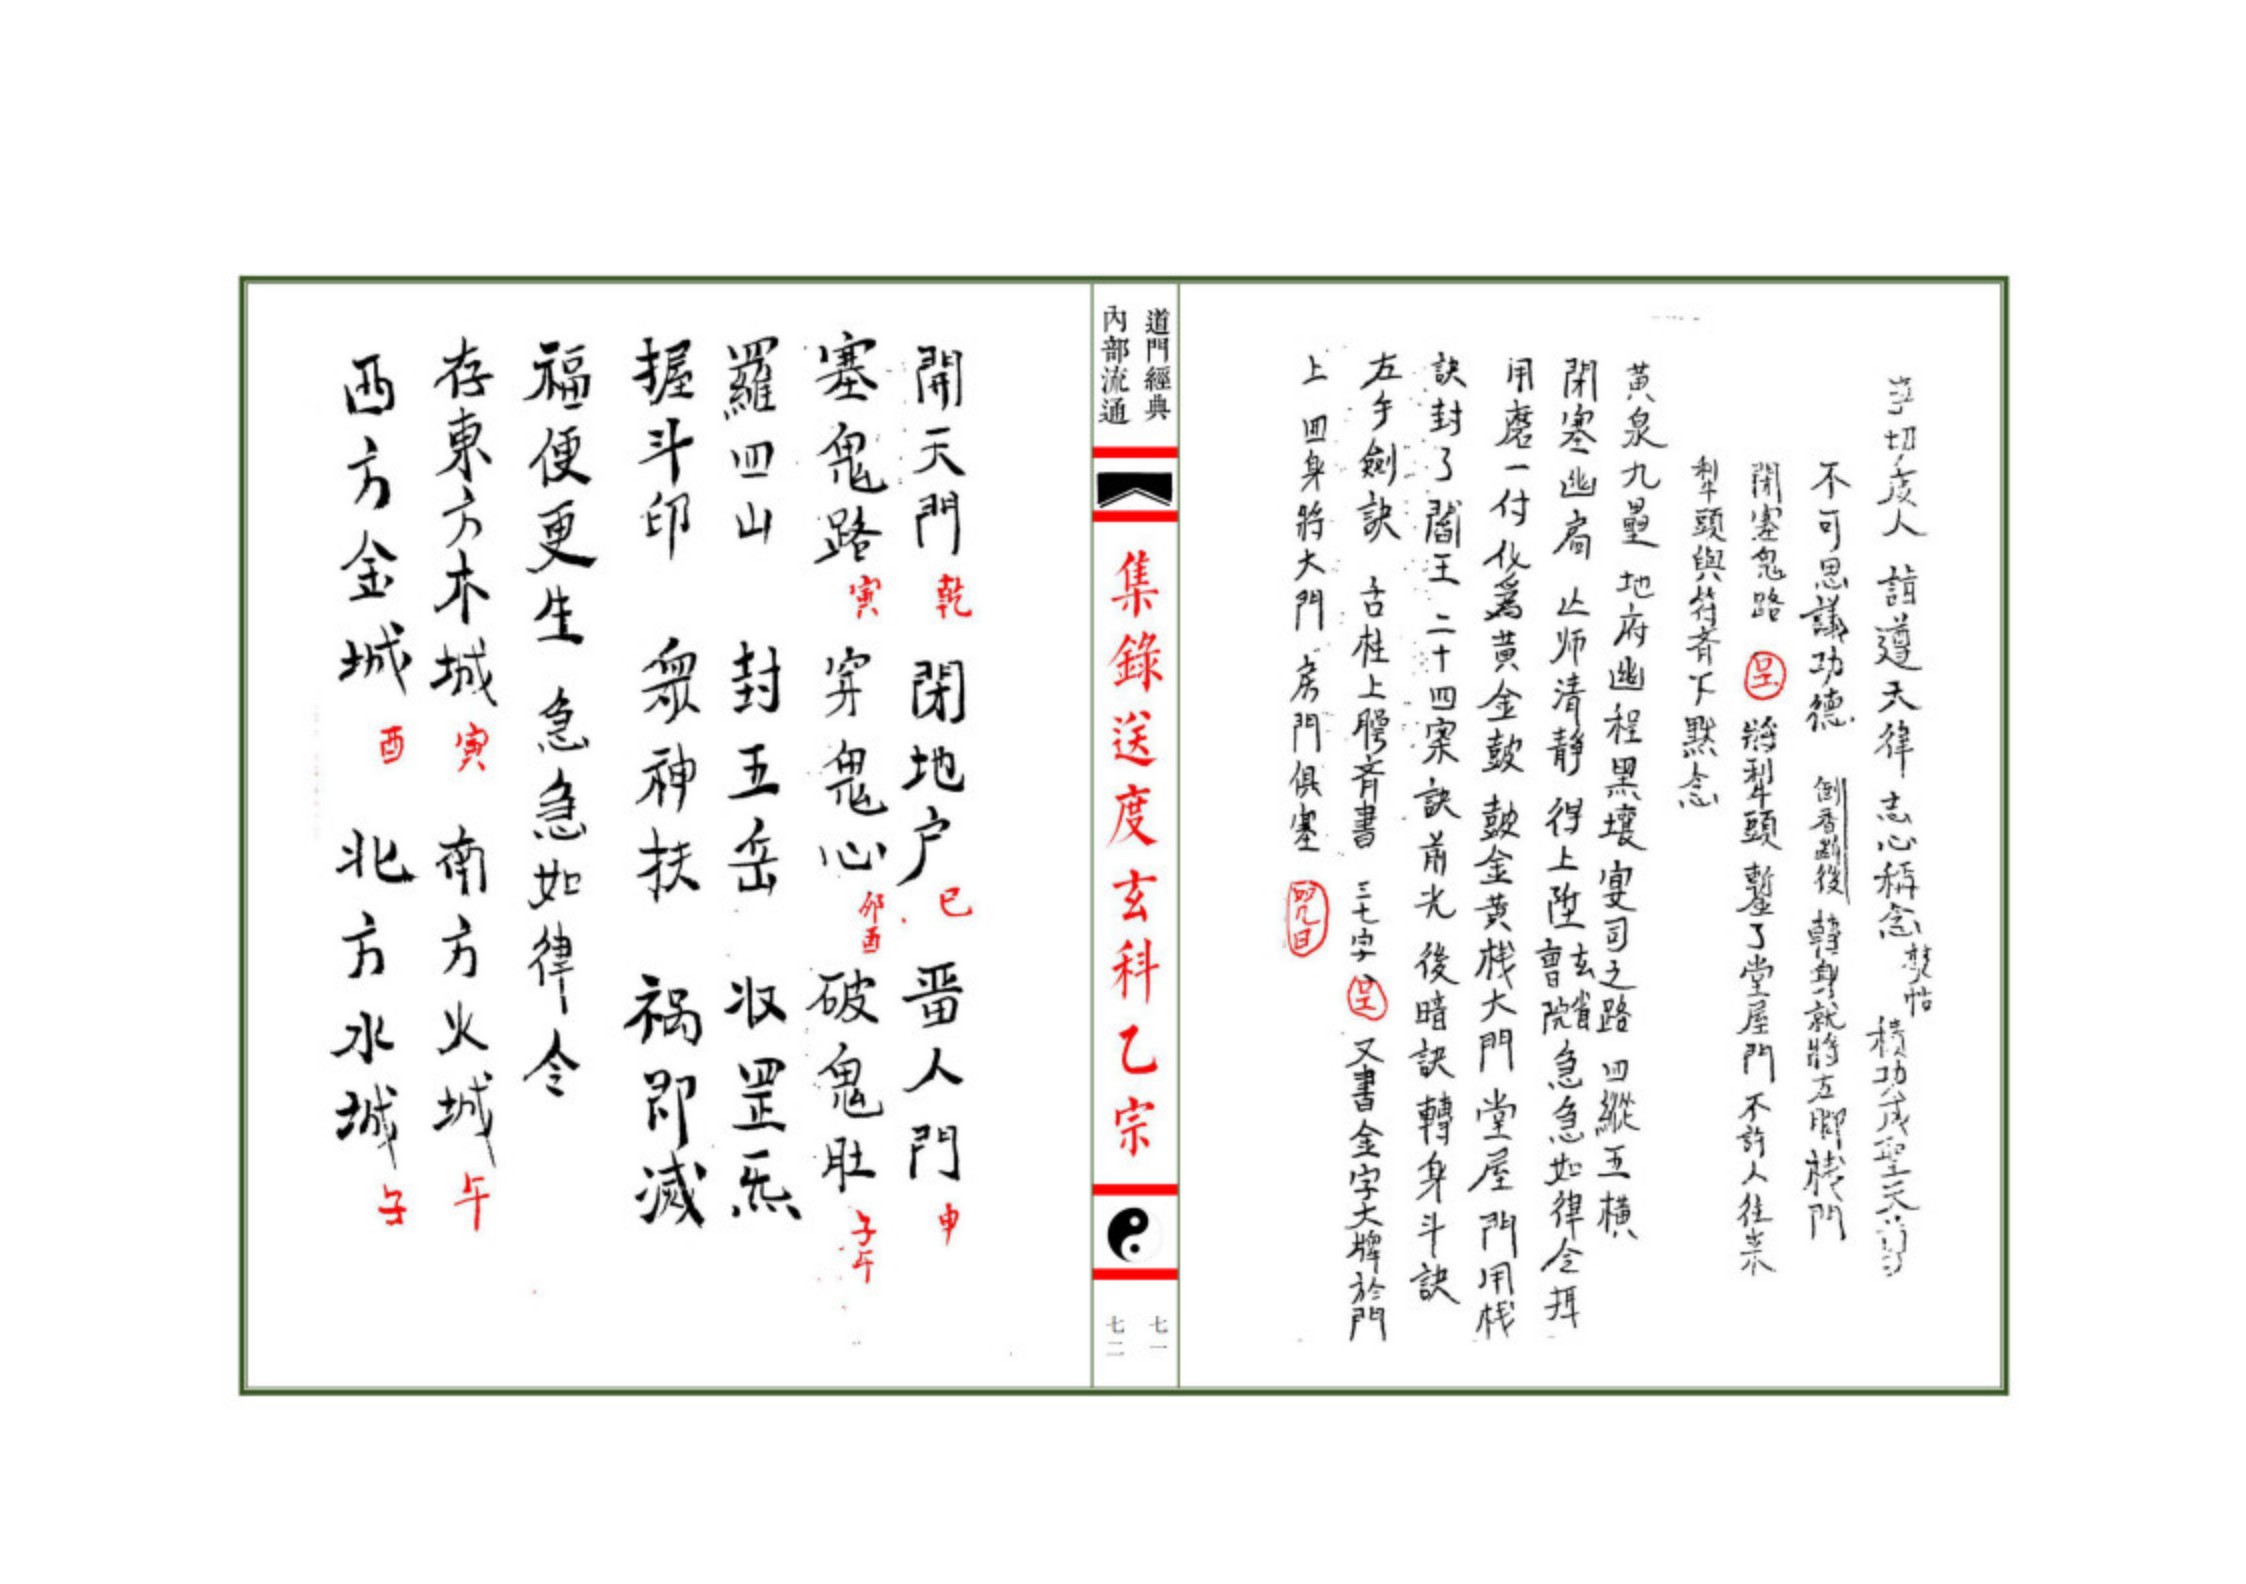 切度人 詣遵天律 志心稱念 焚帖 積功成聖天尊
不可思議功德 倒香斷後 轉身就將左脚栈門
閉塞鬼路 呈 將犁頭 鏨了堂屋門 不許人往来
犁頭與符斉下默念
黃泉九壘 地府幽程黑壤 宴司之路 四縱五橫
閉塞幽扃 丘师清靜 得上陞 玄省曹院 急急如律令 揖
用磨一付 化爲黃金鼓 鼓金黃栈大門 堂屋門用栈
訣封了閻王二十四案 訣前光 後暗訣 轉身斗訣
左手劍訣 舌柱上腭斉書 三七字 呈 又書金字大牌於門
上 回身將大門 房門俱塞 咒曰
道門經典
內部流通
集錄送度玄科乙宗
七一
七二
開天門 乾 閉地户 巳 畱人門 申
塞鬼路 寅 穿鬼心 卯酉 破鬼肚 子午
羅四山 封五岳 収罡炁
握斗印 眾神扶 禍即滅
福便更生 急急如律令
存東方木城 寅 南方火城 午
西方金城 酉 北方水城 子